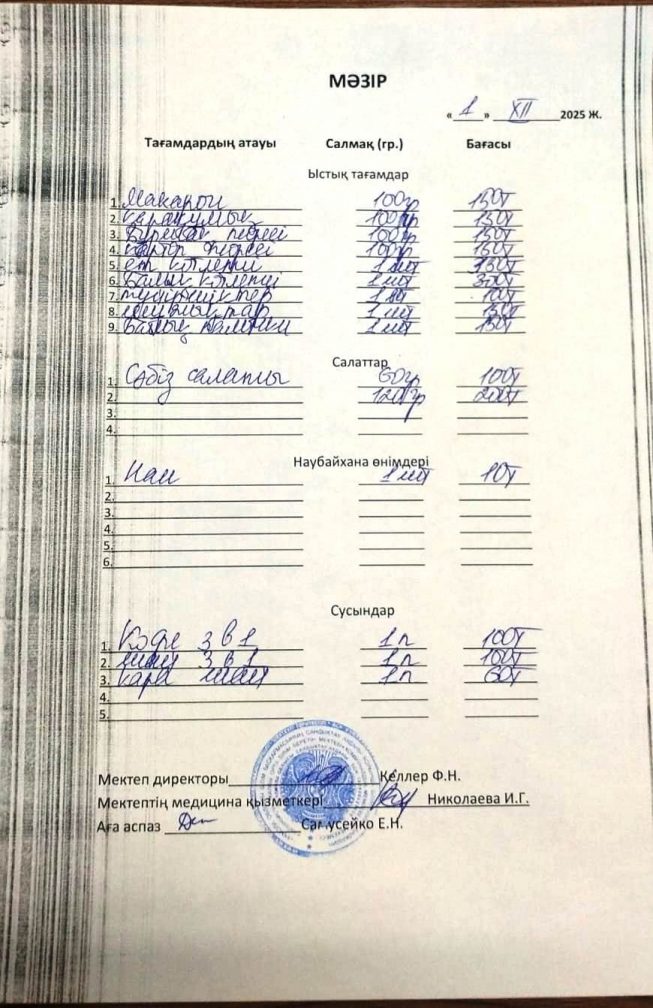 МӘЗІР
«1» XII 2025 ж.
Тағамдардың атауы Салмақ (гр.) Бағасы
Ыстық тағамдар
1. Макарон 100гр 150т
2. қарақұмық 100гр 150т
3. Бұршақ пюресі 100гр 150т
4. картоп пюресі 100гр 150т
5. ет котлеті 1шт
6. Балық котлеті 1шт 300т
7. 1шт
8. 1шт
9. 1шт 150т
Салаттар
1. Сәбіз салаты 60гр 100т
2. 120гр 200т
3.
4.
Наубайхана өнімдері
1. Нан 1шт 10т
2.
3.
4.
5.
6.
Сусындар
1. Кофе 3 в 1 1п 100т
2. шай 3 в 1 1п 100т
3. қара шай 1п 60т
4.
5.
Мектеп директоры Келлер Ф.Н.
Мектептің медицина қызметкері Николаева И.Г.
Аға аспаз Самусейко Е.Н.